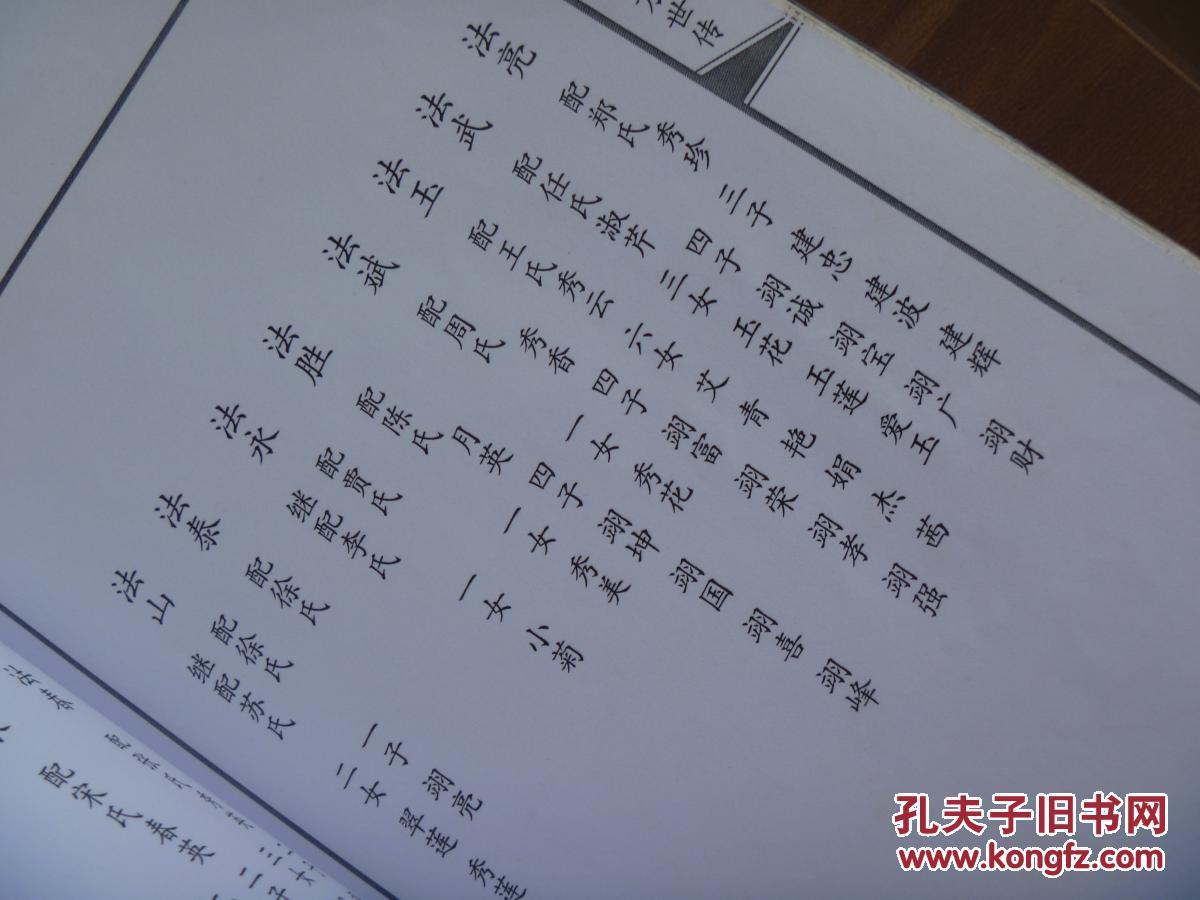 世传
法亮 配郑氏秀珍 三子 建忠 建波 建辉
法武 配任氏淑芹 四子 翊诚 翊宝 翊广 翊财
三女 玉花 玉莲 爱玉
法玉 配王氏秀云 六女 艾 青 艳 娟 杰 茜
法斌 配周氏秀香 四子 翊富 翊荣 翊孝 翊强
一女 秀花
法胜 配陈氏月英 四子 翊坤 翊国 翊喜 翊峰
一女 秀美
法永 配贾氏
继配李氏 一女 小菊
法泰 配徐氏
法山 配徐氏 一子 翊亮
继配苏氏 二女 翠莲 秀莲
法春
配宋氏春英 二子
孔夫子旧书网
www.kongfz.com